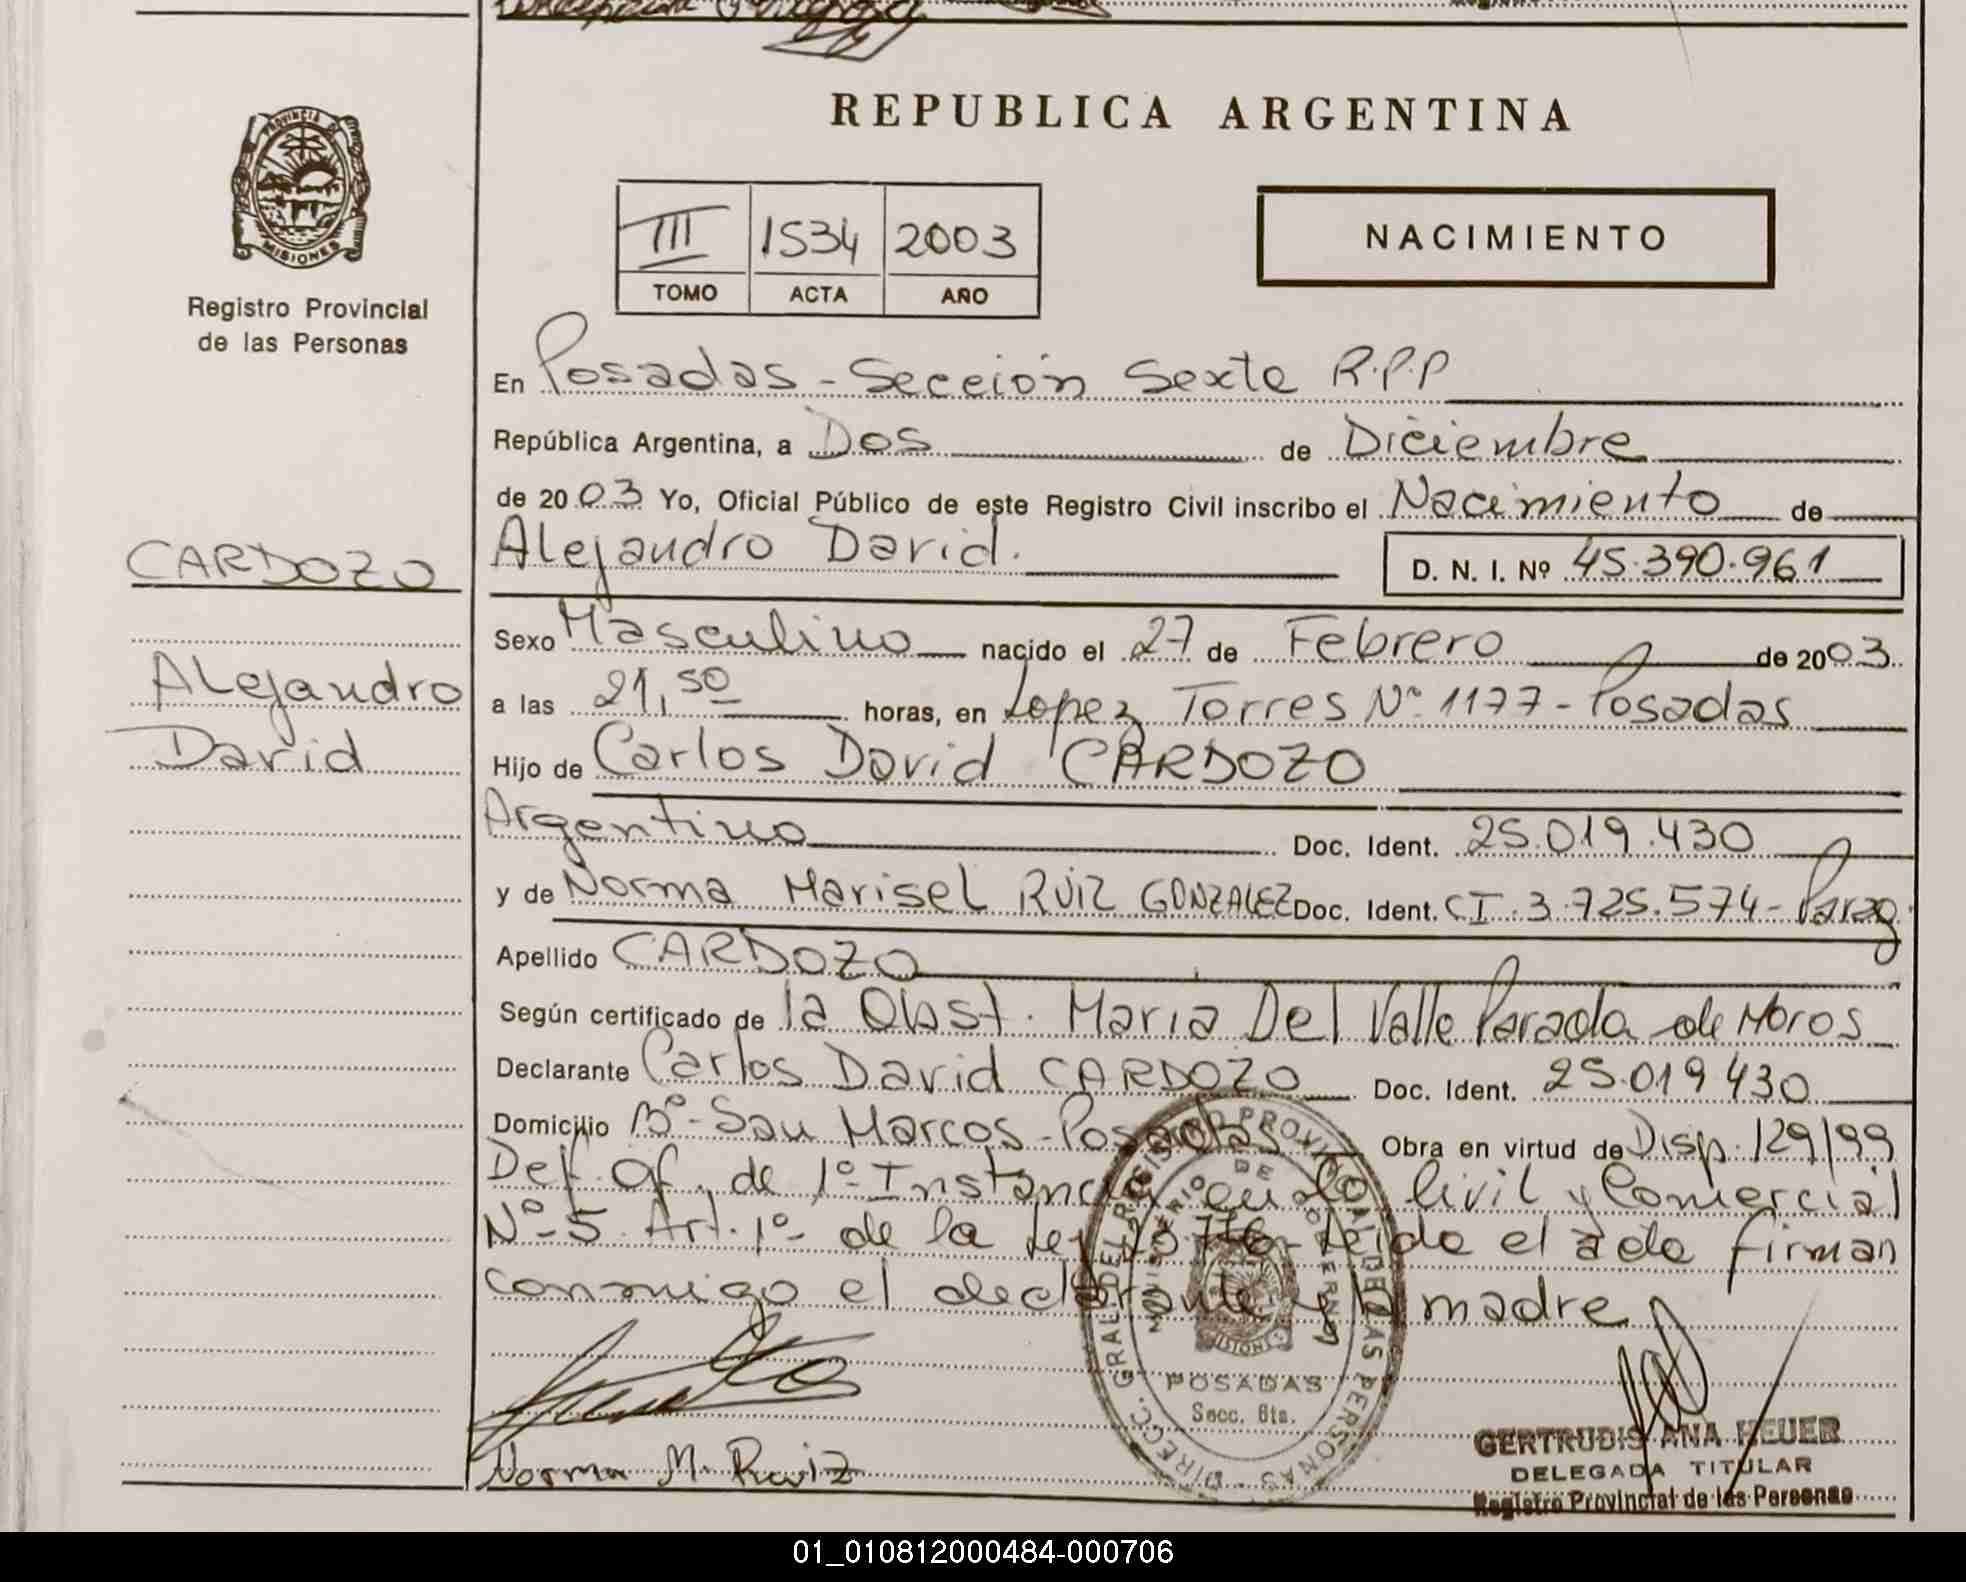 REPUBLICA ARGENTINA
PROVINCIA DE
MISIONES
Registro Provincial
de las Personas
III 1534 2003
TOMO ACTA AÑO
NACIMIENTO
En Posadas - Sección Sexta R.P.P
República Argentina, a Dos de Diciembre
de 2003 Yo, Oficial Público de este Registro Civil inscribo el Nacimiento de
CARDOZO
Alejandro David.
D. N. I. Nº 45.390.961
Sexo Masculino nacido el 27 de Febrero de 2003
Alejandro
David
a las 21,50 horas, en Lopez Torres Nº 1177 - Posadas
Hijo de Carlos David CARDOZO
Argentino Doc. Ident. 25.019.430
y de Norma Marisel RUIZ GONZALEZ Doc. Ident. CI. 3.725.574 - Parag.
Apellido CARDOZO
Según certificado de la Obst. Maria Del Valle Parada de Moros
Declarante Carlos David CARDOZO Doc. Ident. 25.019.430
Domicilio Bº San Marcos - Posadas Obra en virtud de Disp. 129/99
Def. Of. de 1º Instancia en lo Civil y Comercial
Nº 5 Art. 1º de la Ley Leida el acta firman
conmigo el declarante y la madre
DIRECC. GRAL. DEL REGISTRO PROVINCIAL DE LAS PERSONAS
MINISTERIO DE GOBIERNO
MISIONES
POSADAS
Secc. 6ta.
Norma M. Ruiz
GERTRUDIS ANA HEUER
DELEGADA TITULAR
Registro Provincial de las Personas
01_010812000484-000706